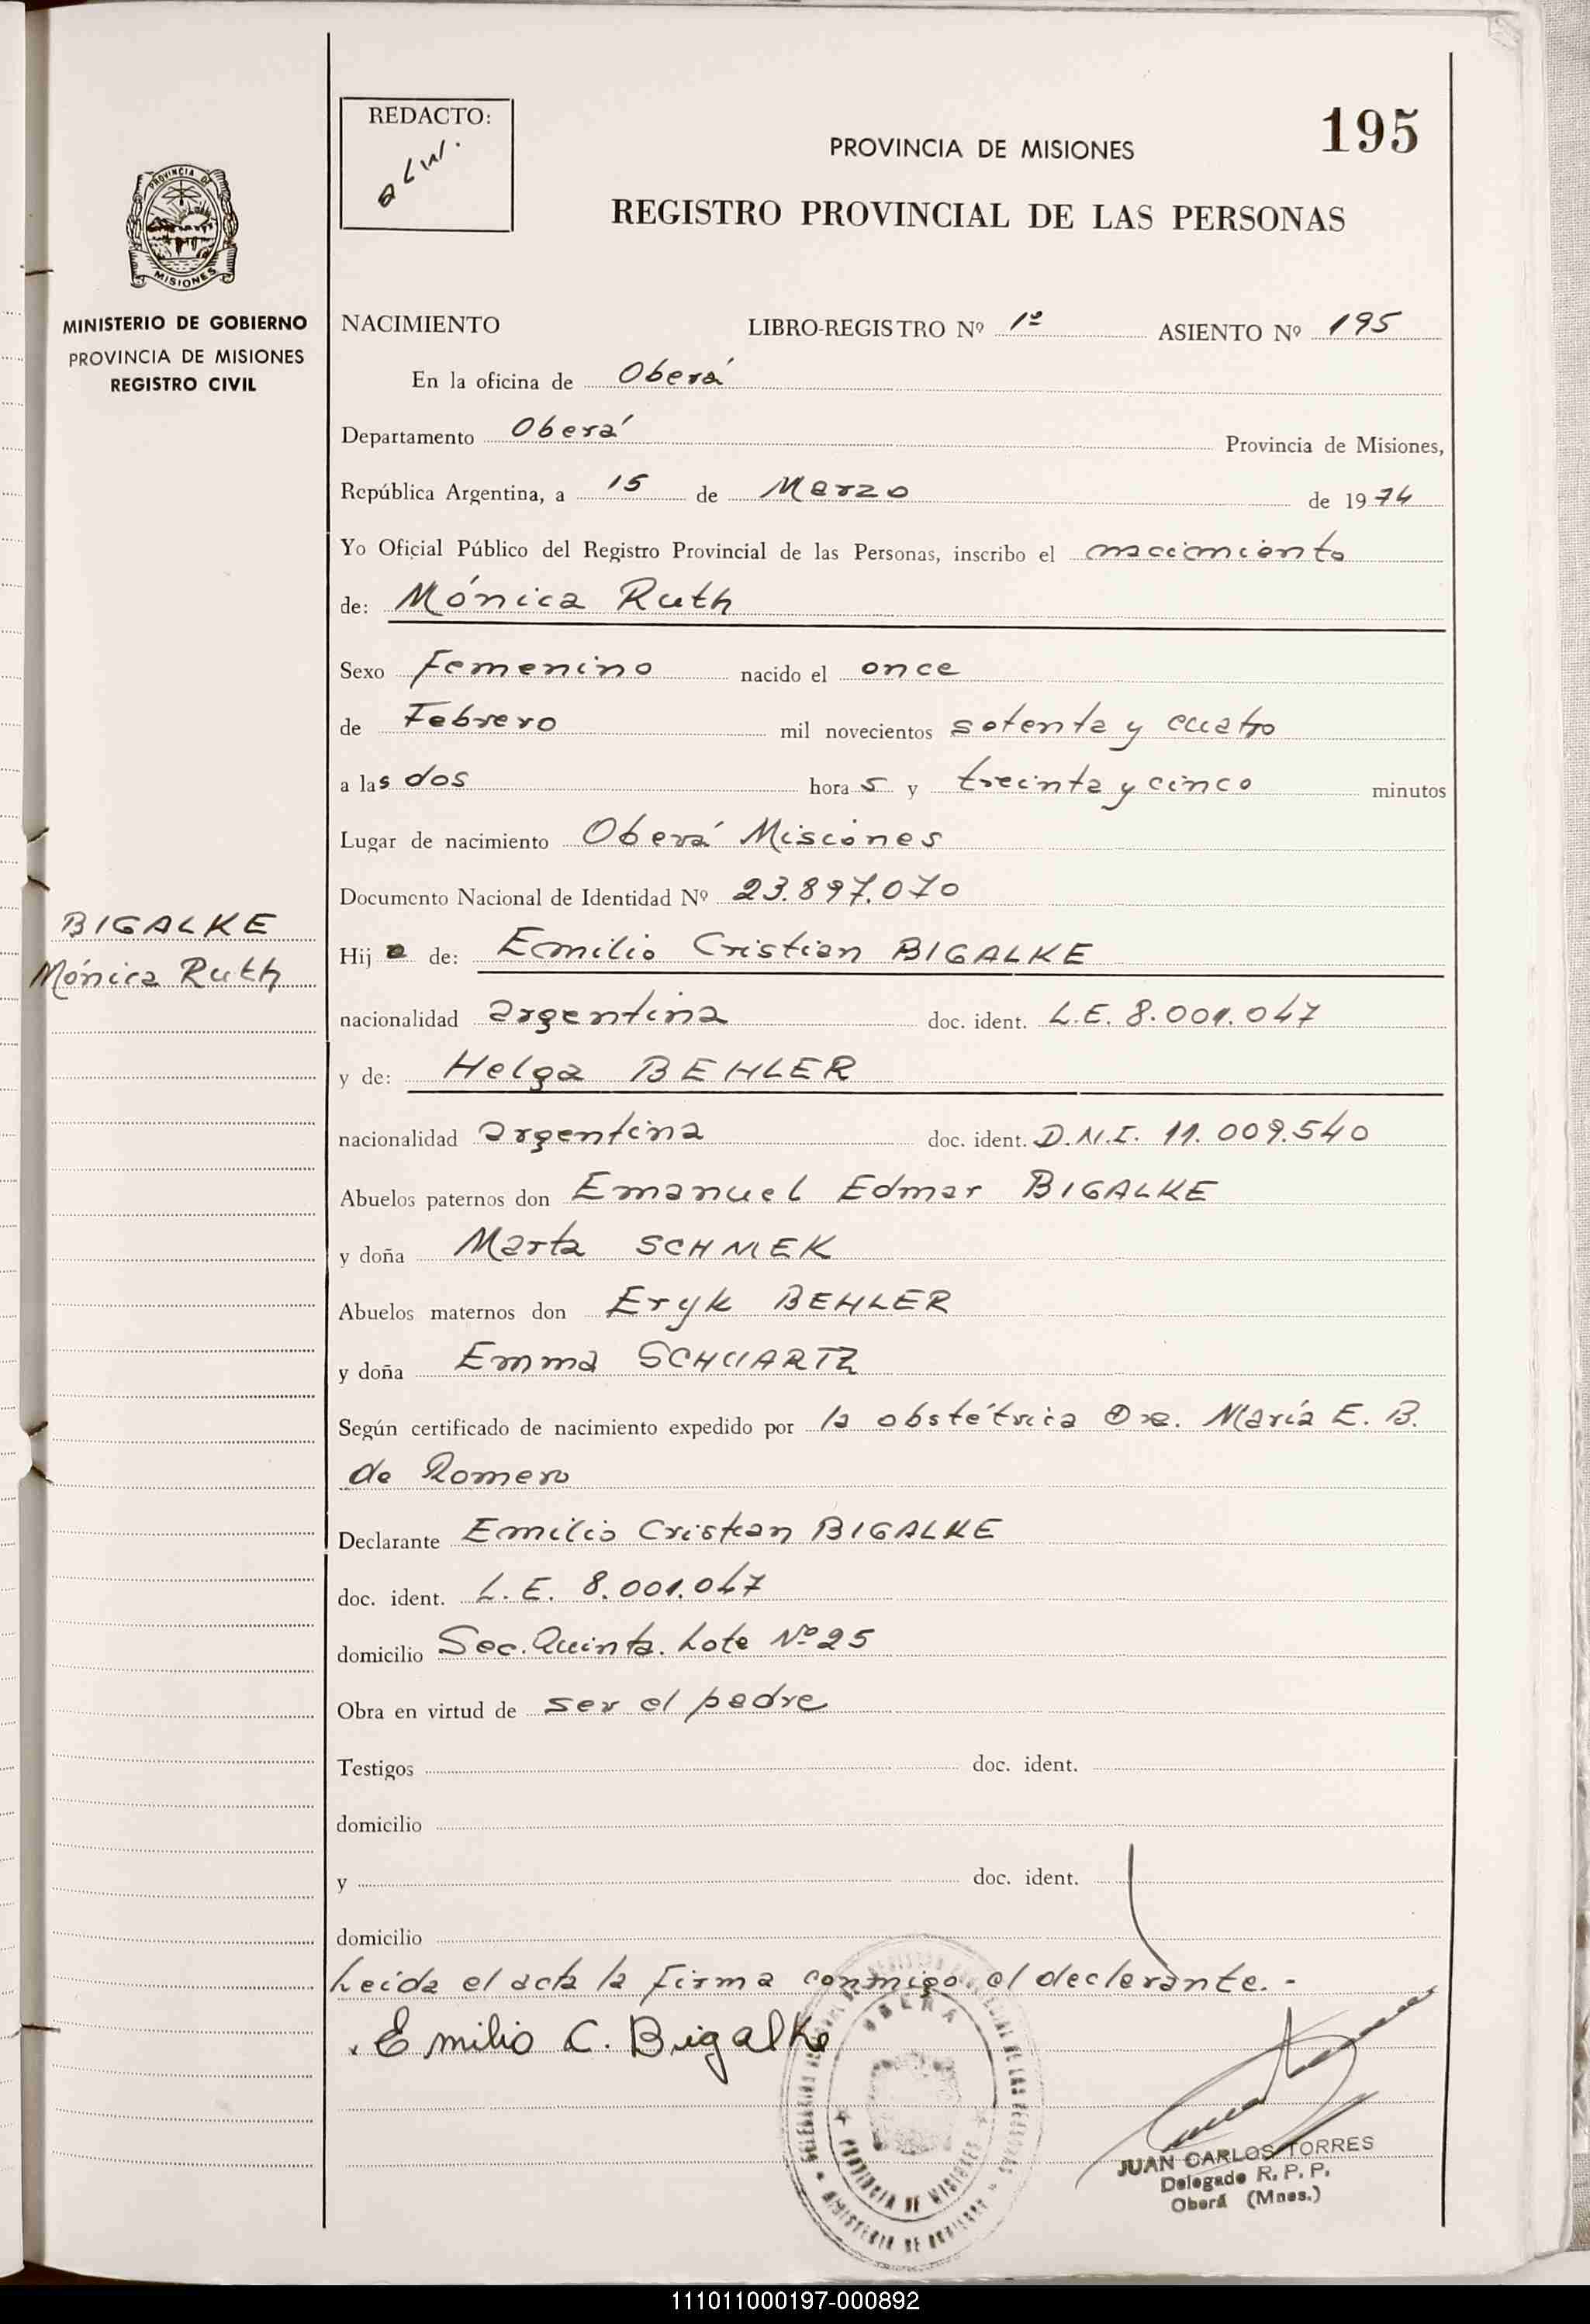 REDACTO:
195
PROVINCIA DE MISIONES
REGISTRO PROVINCIAL DE LAS PERSONAS
PROVINCIA DE
MISIONES
MINISTERIO DE GOBIERNO
PROVINCIA DE MISIONES
REGISTRO CIVIL
NACIMIENTO LIBRO-REGISTRO Nº 1º ASIENTO Nº 195
En la oficina de Oberá
Departamento Oberá Provincia de Misiones,
República Argentina, a 15 de Marzo de 1974
Yo Oficial Público del Registro Provincial de las Personas, inscribo el nacimiento
de: Mónica Ruth
Sexo Femenino nacido el once
de Febrero mil novecientos setenta y cuatro
a las dos hora s y treinta y cinco minutos
Lugar de nacimiento Oberá Misiones
Documento Nacional de Identidad Nº 23.897.070
BIGALKE
Mónica Ruth
Hij a de: Emilio Cristian BIGALKE
nacionalidad argentina doc. ident. L.E. 8.001.047
y de: Helga BEHLER
nacionalidad argentina doc. ident. D.N.I. 11.009.540
Abuelos paternos don Emanuel Edmar BIGALKE
y doña Marta SCHMEK
Abuelos maternos don Eryk BEHLER
y doña Emma SCHUARTZ
Según certificado de nacimiento expedido por la obstétrica Dra. María E. B.
de Romero
Declarante Emilio Cristian BIGALKE
doc. ident. L.E. 8.001.047
domicilio Sec. Quinta. Lote Nº 25
Obra en virtud de ser el padre
Testigos doc. ident.
domicilio
y doc. ident.
domicilio
Leida el acta la firma conmigo el declarante.-
Emilio C. Bigalke
OBERA
PROVINCIA DE MISIONES
JUAN CARLOS TORRES
Delegado R. P. P.
Oberá (Mnes.)
111011000197-000892